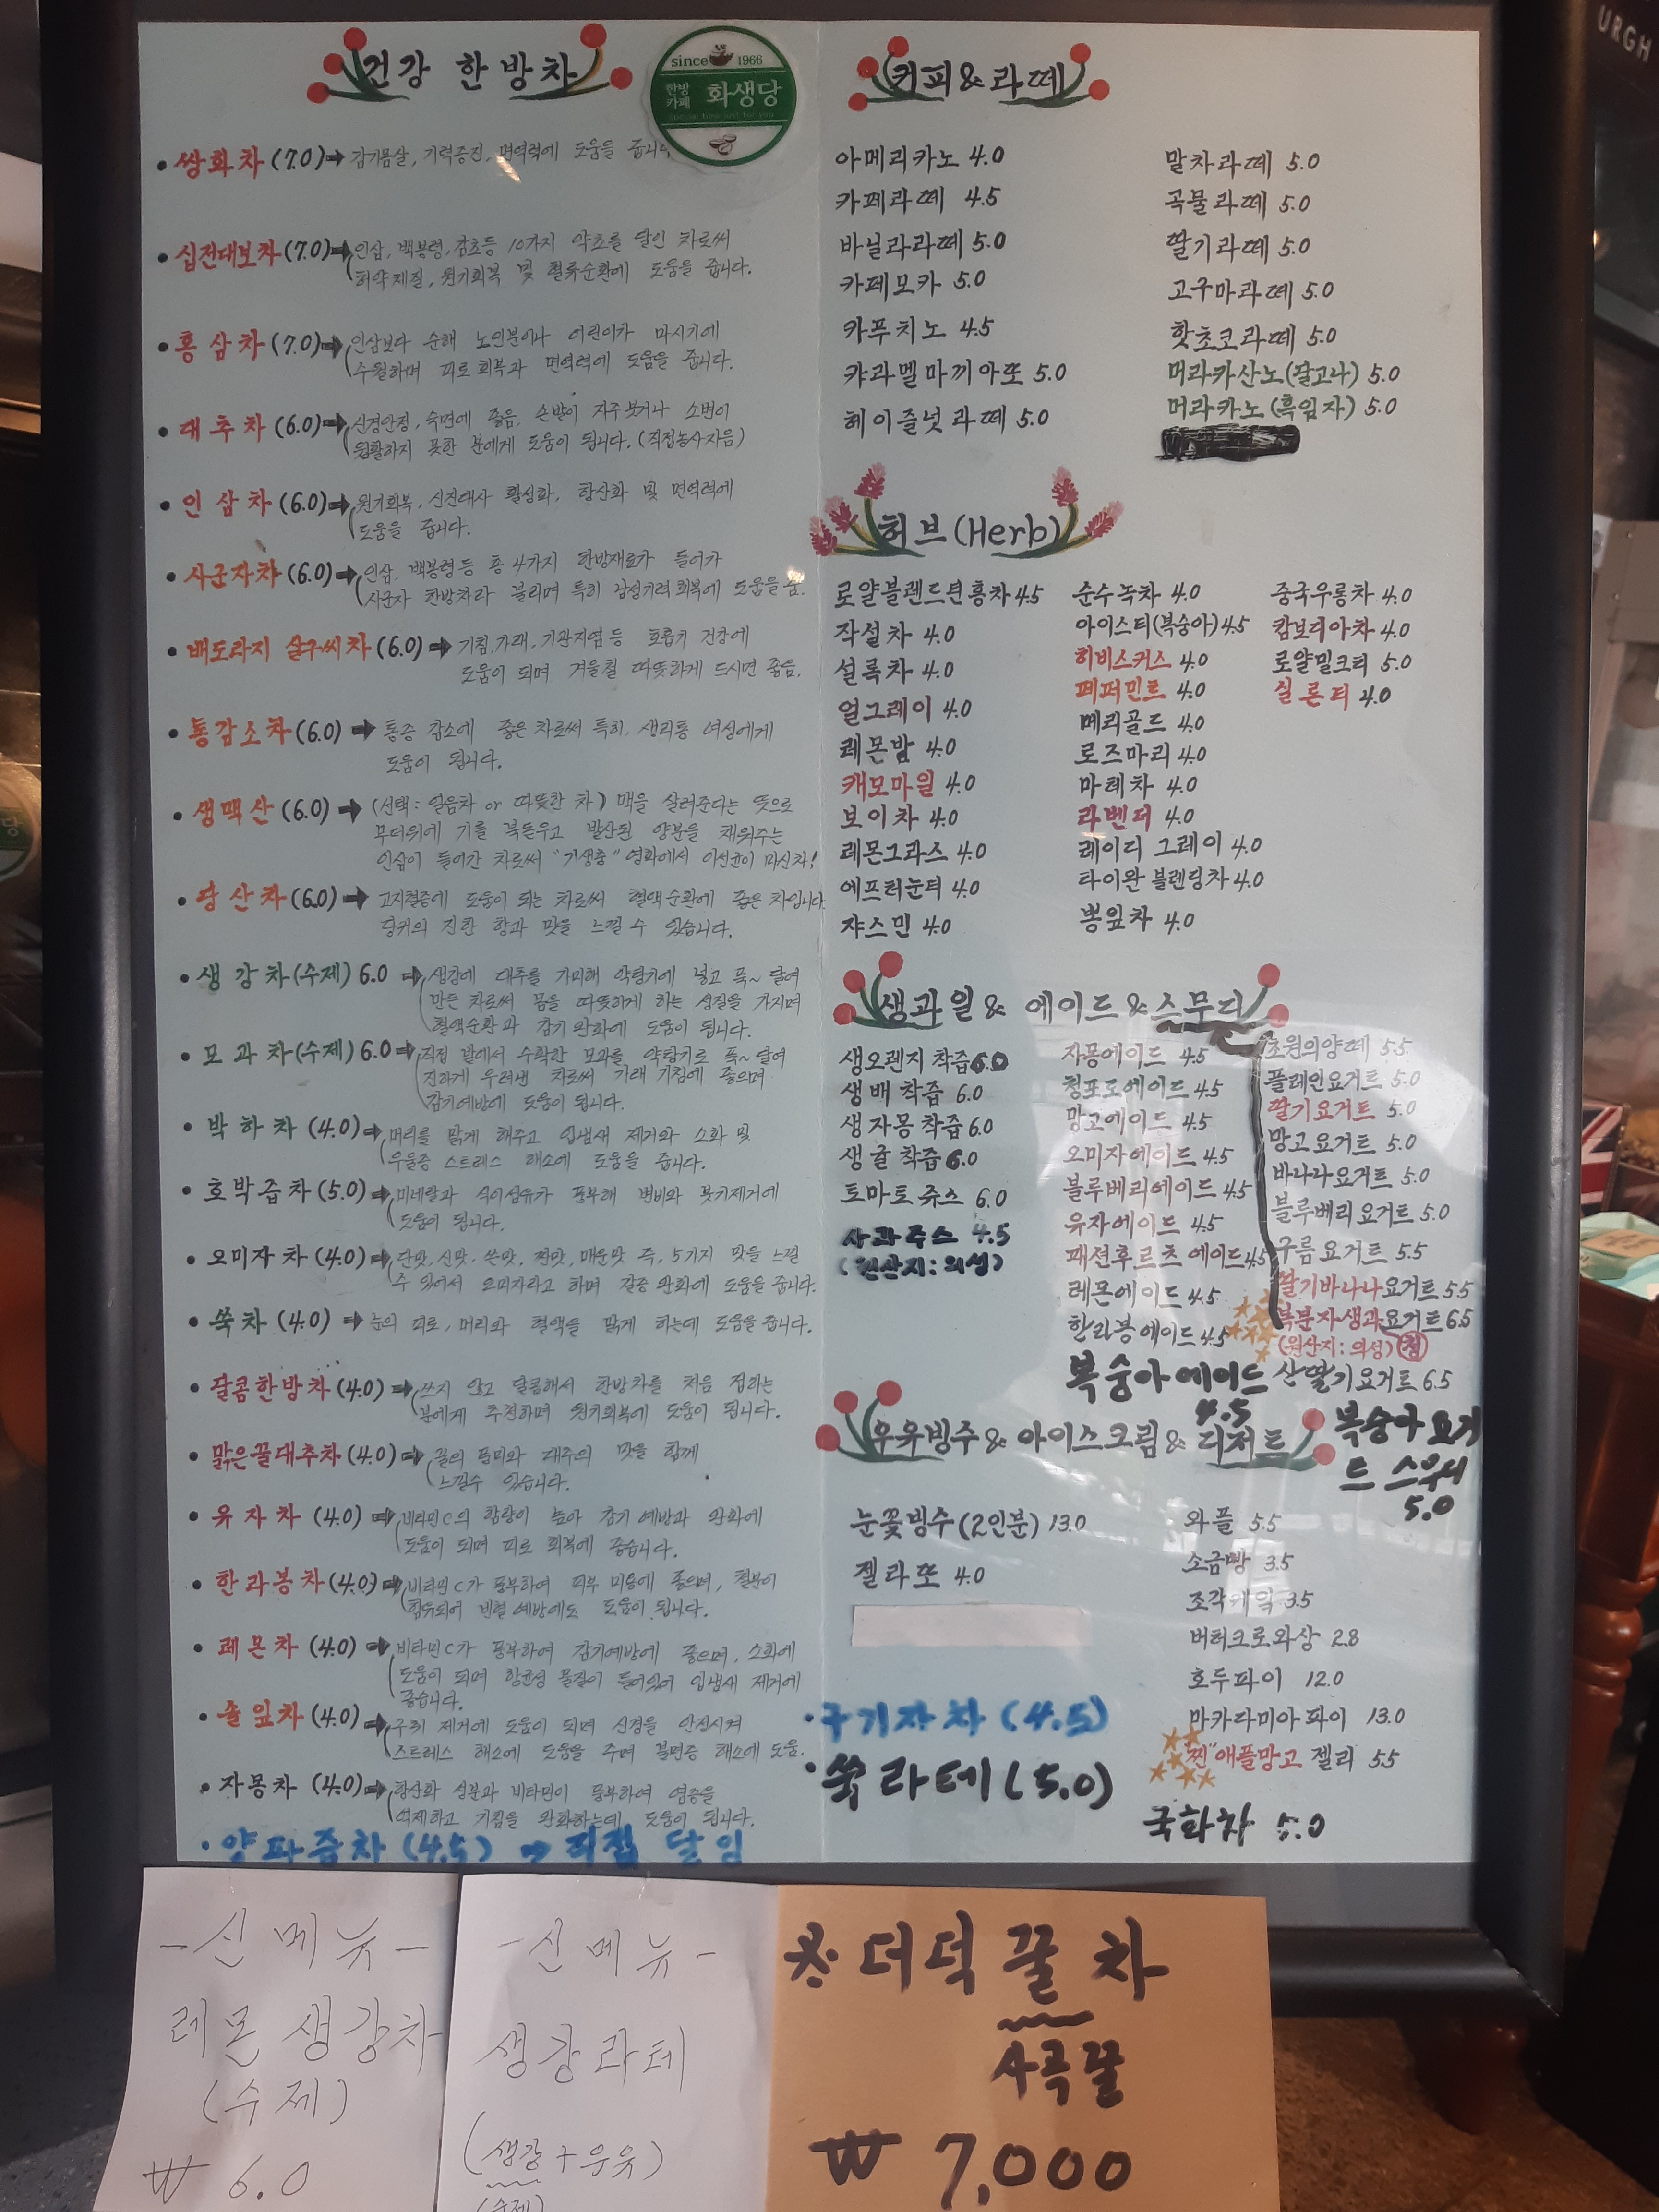 건강 한방차
since 1966
한방
카페 화생당
• 쌍화차 (7.0) ➡ 감기몸살, 기력증진, 면역력에 도움을 줍니다
• 십전대보차 (7.0) ➡ 인삼, 백봉령, 감초등 10가지 약초를 달인 차로써
허약체질, 원기회복 및 혈류순환에 도움을 줍니다.
• 홍삼차 (7.0) ➡ 인삼보다 순해 노인분이나 어린이가 마시기에
수월하며 피로회복과 면역력에 도움을 줍니다.
• 대추차 (6.0) ➡ 신경안정, 숙면에 좋음. 손발이 자주 붓거나 소변이
원활하지 못한 분에게 도움이 됩니다. (직접농사지음)
• 인삼차 (6.0) ➡ 원기회복, 신진대사 활성화, 항산화 및 면역력에
도움을 줍니다.
• 사군자차 (6.0) ➡ 인삼, 백봉령등 총 4가지 한방재료가 들어가
사군자 한방차라 불리며 특히 남성기력회복에 도움을 줌.
• 배도라지 살구씨차 (6.0) ➡ 기침, 가래, 기관지염등 호흡기 건강에
도움이 되며 겨울철 따뜻하게 드시면 좋음.
• 통감소차 (6.0) ➡ 통증 감소에 좋은 차로써 특히, 생리통 여성에게
도움이 됩니다.
• 생맥산 (6.0) ➡ (선택: 얼음차 or 따뜻한 차) 맥을 살려준다는 뜻으로
무더위에 기를 북돋우고 발산된 양분을 채워주는
인삼이 들어간 차로써 "기생충" 영화에서 이선균이 마신차!
• 당산차 (6.0) ➡ 고지혈증에 도움이 되는 차로써 혈액순환에 좋은 차입니다.
당귀의 진한 향과 맛을 느낄 수 있습니다.
• 생강차(수제) 6.0 ➡ 생강에 대추를 가미해 약탕기에 넣고 푹~ 달여
만든 차로써 몸을 따뜻하게 하는 성질을 가지며
혈액순환과 감기 완화에 도움이 됩니다.
• 모과차(수제) 6.0 ➡ 직접 밭에서 수확한 모과를 약탕기로 푹~ 달여
진하게 우려낸 차로써 가래 기침에 좋으며
감기예방에 도움이 됩니다.
• 박하차 (4.0) ➡ 머리를 맑게 해주고 입냄새 제거와 소화 및
우울증 스트레스 해소에 도움을 줍니다.
• 호박즙차 (5.0) ➡ 미네랄과 식이섬유가 풍부해 변비와 붓기제거에
도움이 됩니다.
• 오미자차 (4.0) ➡ 단맛, 신맛, 쓴맛, 짠맛, 매운맛 즉, 5가지 맛을 느낄
수 있어서 오미자라고 하며 갈증 완화에 도움을 줍니다.
• 쑥차 (4.0) ➡ 눈의 피로, 머리와 혈액을 맑게 하는데 도움을 줍니다.
• 달콤한방차 (4.0) ➡ 쓰지 않고 달콤해서 한방차를 처음 접하는
분에게 추천하며 원기회복에 도움이 됩니다.
• 맑은꿀대추차 (4.0) ➡ 꿀의 풍미와 대추의 맛을 함께
느낄수 있습니다.
• 유자차 (4.0) ➡ 비타민C의 함량이 높아 감기 예방과 완화에
도움이 되며 피로 회복에 좋습니다.
• 한라봉차 (4.0) ➡ 비타민C가 풍부하여 피부 미용에 좋으며, 철분이
함유되어 빈혈 예방에도 도움이 됩니다.
• 레몬차 (4.0) ➡ 비타민C가 풍부하여 감기예방에 좋으며, 소화에
도움이 되며 항균성 물질이 들어있어 입냄새 제거에
좋습니다.
• 솔잎차 (4.0) ➡ 구취 제거에 도움이 되며 신경을 안정시켜
스트레스 해소에 도움을 주며 불면증 해소에 도움.
• 자몽차 (4.0) ➡ 항산화 성분과 비타민이 풍부하여 염증을
억제하고 기침을 완화하는데 도움이 됩니다.
• 양파즙차 (4.5) ➡ 직접 달임
커피&라떼
아메리카노 4.0
카페라떼 4.5
바닐라라떼 5.0
카페모카 5.0
카푸치노 4.5
캬라멜마끼아또 5.0
헤이즐넛라떼 5.0
말차라떼 5.0
곡물라떼 5.0
딸기라떼 5.0
고구마라떼 5.0
핫초코라떼 5.0
머라카산노(달고나) 5.0
머라카노(흑임자) 5.0
허브(Herb)
로얄블렌드텐홍차 4.5
작설차 4.0
설록차 4.0
얼그레이 4.0
레몬밤 4.0
캐모마일 4.0
보이차 4.0
레몬그라스 4.0
에프터눈티 4.0
쟈스민 4.0
순수녹차 4.0
아이스티(복숭아) 4.5
히비스커스 4.0
페퍼민트 4.0
메리골드 4.0
로즈마리 4.0
마테차 4.0
라벤더 4.0
레이디 그레이 4.0
타이완 블렌딩차 4.0
뽕잎차 4.0
중국우롱차 4.0
캄보디아차 4.0
로얄밀크티 5.0
실론티 4.0
생과일 & 에이드 & 스무디
생오렌지 착즙 6.0
생배 착즙 6.0
생자몽 착즙 6.0
생귤 착즙 6.0
토마토쥬스 6.0
사과주스 4.5
(원산지: 의성)
자몽에이드 4.5
청포도에이드 4.5
망고에이드 4.5
오미자에이드 4.5
블루베리에이드 4.5
유자에이드 4.5
패션후르츠 에이드 4.5
레몬에이드 4.5
한라봉에이드 4.5
복숭아에이드
4.5
초원의양떼 5.5
플레인요거트 5.0
딸기요거트 5.0
망고요거트 5.0
바나나요거트 5.0
블루베리요거트 5.0
구름요거트 5.5
딸기바나나요거트 5.5
복분자생과요거트 6.5
(원산지: 의성) 청
산딸기요거트 6.5
복숭아요거
트 스무디
5.0
우유빙수 & 아이스크림 & 디저트
눈꽃빙수(2인분) 13.0
젤라또 4.0
와플 5.5
소금빵 3.5
조각케익 3.5
버터크로와상 2.8
호두파이 12.0
마카다미아파이 13.0
"찐"애플망고 젤리 5.5
국화차 5.0
• 구기자차 (4.5)
• 쑥라테 (5.0)
- 신메뉴 -
레몬 생강차
(수제)
₩ 6.0
- 신메뉴 -
생강라테
(생강+우유)
(수제)
※ 더덕꿀차
사곡꿀
₩ 7,000
URGH
당